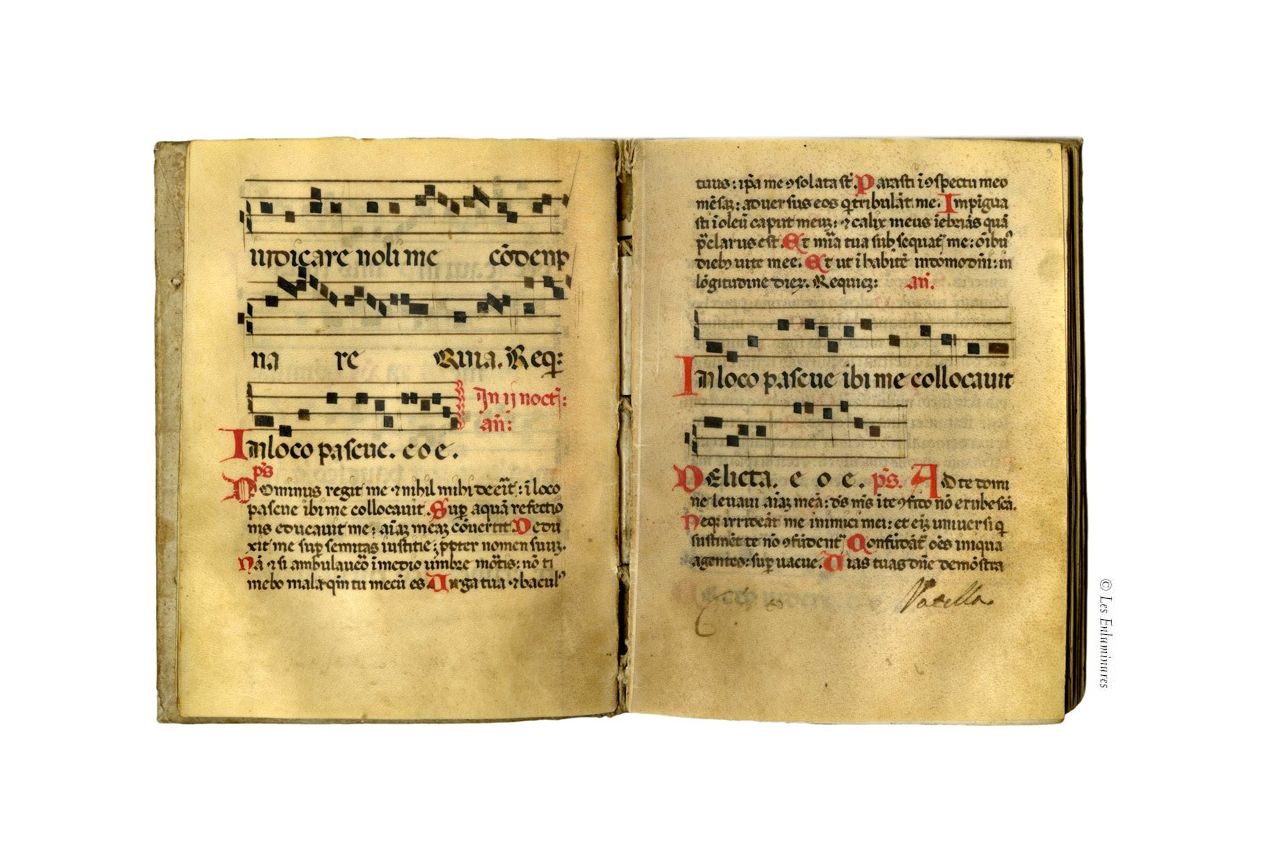 iudicare noli me cōdenp
na re Quia. Req̄:
In ij noct̄:
añ:
In loco pascue. e o e.
p̄s
Dominus regit me ⁊ nihil mihi deerit: ī loco
pascue ibi me collocauit. Sup̄ aquā refectio
nis educauit me: aīaȝ meaȝ cōuertit. Dedu
xit me sup̄ semitas iustitie: p̄pter nomen suuȝ.
Nā ⁊ si ambulauero ī medio vmbre mortis: nō ti
mebo mala: qm̄ tu mecū es. Uirga tua ⁊ bacul⁹
9
tuus: ip̄a me ꝯsolata st̄. Parasti ī ꝯspectu meo
mēsaȝ: aduersus eos q̄ tribulāt me. Impigua
sti ī oleū caput meuȝ: ⁊ calix meus īebriās quā
p̄clarus est. Et mīa tua subsequat̄ me: oībus
diebȝ uite mee. Et ut īhabitē in domo dn̄i: in
lōgitudine dieȝ. Requieȝ: añ.
In loco pascue ibi me collocauit
Delicta. e o e. p̄s. Ad te domi
ne leuaui aīaȝ meā: ds̄ ms̄ ī te ꝯfido nō erubescā.
Neq̄ irrideāt me inimici mei: et eīȝ uniuersi q̄
sustinēt te nō ꝯfūdent̄. Confūdāt̄ oēs iniqua
agentes: sup̄uacue. Uias tuas dn̄e demōstra
© Les Enluminures